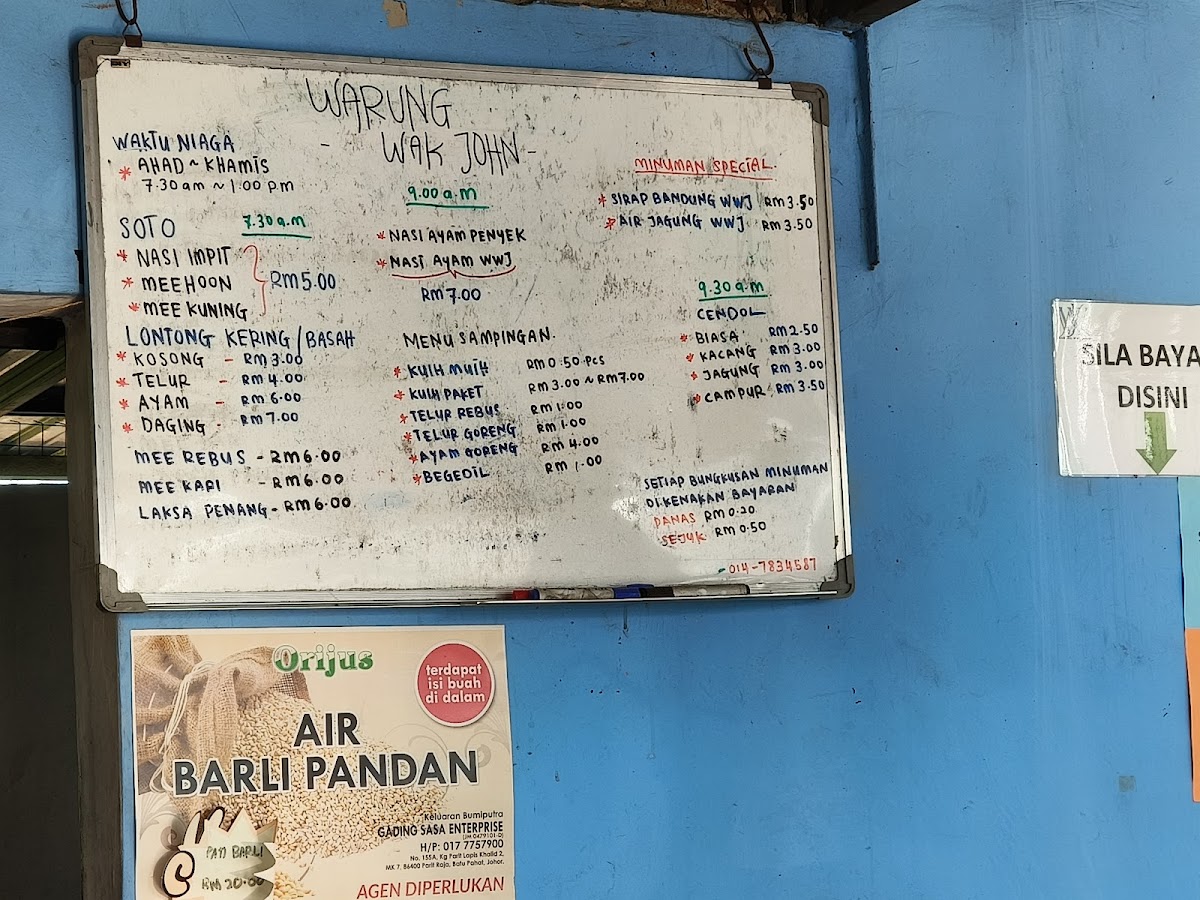 WARUNG
- WAK JOHN -
WAKTU NIAGA
* AHAD ~ KHAMIS
7.30 am ~ 1.00 pm
SOTO 7.30 a.m
* NASI IMPIT
* MEEHOON
* MEE KUNING
RM 5.00
LONTONG KERING / BASAH
* KOSONG - RM 3.00
* TELUR - RM 4.00
* AYAM - RM 6.00
* DAGING - RM 7.00
MEE REBUS - RM 6.00
MEE KARI - RM 6.00
LAKSA PENANG - RM 6.00
9.00 a.m
* NASI AYAM PENYEK
* NASI AYAM WWJ
RM 7.00
MENU SAMPINGAN.
* KUIH MUIH RM 0.50 Pcs
* KUIH PAKET RM 3.00 ~ RM 7.00
* TELUR REBUS RM 1.00
* TELUR GORENG RM 1.00
* AYAM GORENG RM 4.00
* BEGEDIL RM 1.00
MINUMAN SPECIAL.
* SIRAP BANDUNG WWJ RM 3.50
* AIR JAGUNG WWJ RM 3.50
9.30 a.m
CENDOL
* BIASA RM 2.50
* KACANG RM 3.00
* JAGUNG RM 3.00
* CAMPUR RM 3.50
SETIAP BUNGKUSAN MINUMAN
DI KENAKAN BAYARAN
PANAS RM 0.20
SEJUK RM 0.50
- 014-7834587
SILA BAYA
DISINI
Orijus
terdapat
isi buah
di dalam
AIR
BARLI PANDAN
Keluaran Bumiputra
GADING SASA ENTERPRISE
(JM 0479101-D)
H/P: 017 7757900
No. 155A, Kg Parit Lapis Khalid 2,
MK 7, 86400 Parit Raja, Batu Pahat, Johor.
AGEN DIPERLUKAN
PATI BARLI
RM 20.00